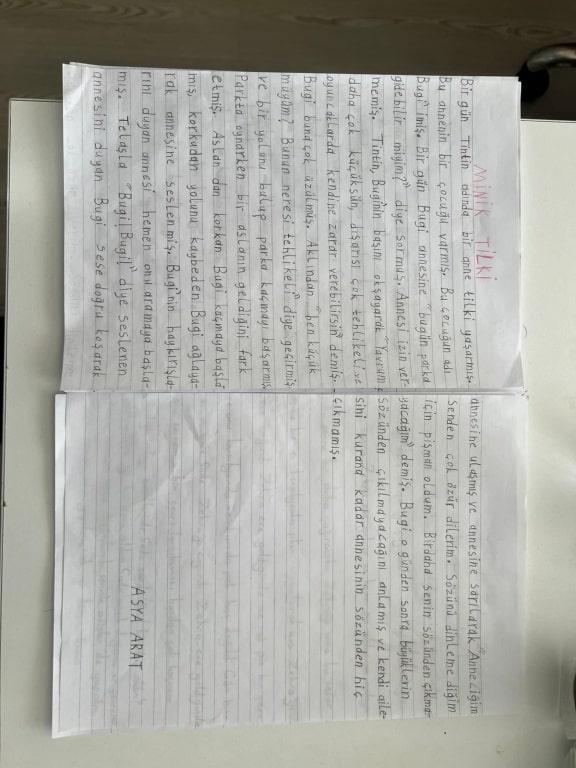 MİNİK TİLKİ
Bir gün Tintin adında bir anne tilki yaşarmış.
Bu annenin bir çocuğu varmış. Bu çocuğun adı
Bugi'imiş. Bir gün Bugi annesine "bugün parka
gidebilir miyim?" diye sormuş. Annesi izin ver-
memiş. Tintin, Bugi'nin başını okşayarak "Yavrum
daha çok küçüksün, dışarısı çok tehlikeli ve
oyuncaklarda kendine zarar verebilirsin" demiş.
Bugi buna çok üzülmüş. Aklından "ben küçük
müyüm? Bunun neresi tehlikeli" diye geçirmiş
ve bir yolunu bulup parka kaçmayı başarmış.
Parkta oynarken bir aslanın geldiğini fark
etmiş. Aslan dan korkan Bugi kaçmaya başla
mış, korkudan yolunu kaybeden Bugi ağlaya-
rak annesine seslenmiş. Bugi'nin haykırışla-
rını duyan annesi hemen onu aramaya başla-
mış. Telaşla "Bugi! Bugi!" diye seslenen
annesini duyan Bugi sese doğru koşarak
annesine ulaşmış ve annesine sarılarak "Anneciğim
Senden çok özür dilerim. Sözünü dinleme diğim
için pişman oldum. Birdaha senin sözünden çıkma-
yacağım" demiş. Bugi o günden sonra büyüklerin
sözünden çıkılmayacağını anlamış ve kendi aile-
sini kurana kadar annesinin sözünden hiç
çıkmamış.
ASYA ARAT